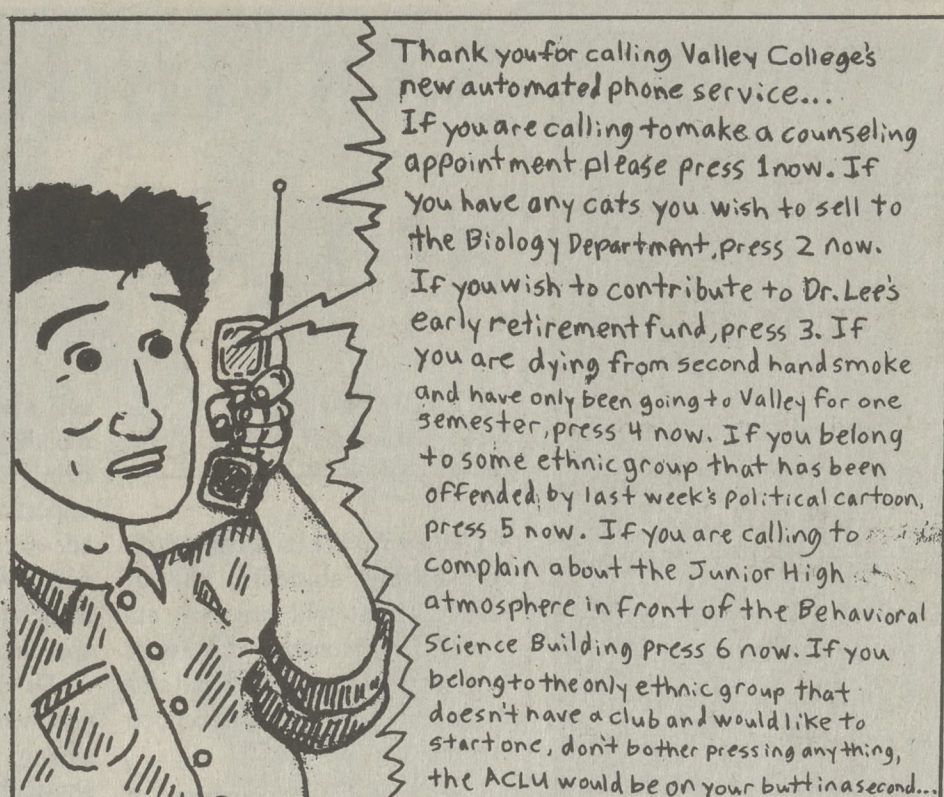 Thank you for calling Valley College's
new automated phone service...
If you are calling to make a counseling
appointment please press 1 now. If
you have any cats you wish to sell to
the Biology Department, press 2 now.
If you wish to contribute to Dr. Lee's
early retirement fund, press 3. If
you are dying from second hand smoke
and have only been going to Valley for one
semester, press 4 now. If you belong
to some ethnic group that has been
offended by last week's political cartoon,
press 5 now. If you are calling to
complain about the Junior High
atmosphere in front of the Behavioral
Science Building press 6 now. If you
belong to the only ethnic group that
doesn't have a club and would like to
start one, don't bother pressing anything,
the ACLU would be on your butt in a second...